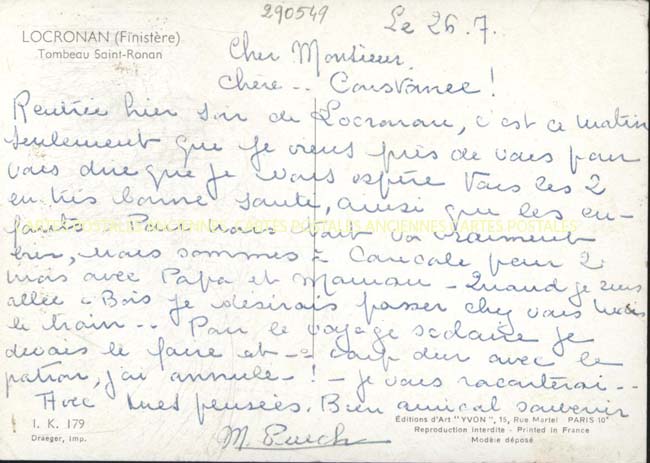 290549
LOCRONAN (Finistère)
Tombeau Saint-Ronan
Le 26.7.
Cher Monsieur.
Chère.. Constance!
Rentrée hier soir de Locronan, c'est ce matin
seulement que je viens près de vous pour
vous dire que je vous espère tous les 2
en très bonne santé, ainsi que les en-
fants. Pour nous tout va vraiment
bien, nous sommes à Cancale pour 2
mois avec Papa et Maman - Quand je suis
allée à Bois je désirais passer chez vous mais
le train... Pour le voyage scolaire je
devais le faire et -- coup dur avec le
patron, j'ai annulé - ! - je vous raconterai...
Avec mes pensées. Bien amical souvenir
M. Puech
CARTES POSTALES ANCIENNES CARTES POSTALES ANCIENNES CARTES POSTALES
I. K. 179
Draeger, Imp.
Editions d'Art "YVON", 15, Rue Martel PARIS-10e
Reproduction interdite - Printed in France
Modèle déposé